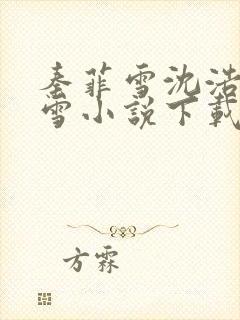 秦菲雪沈浩
雪小说下载
方霖